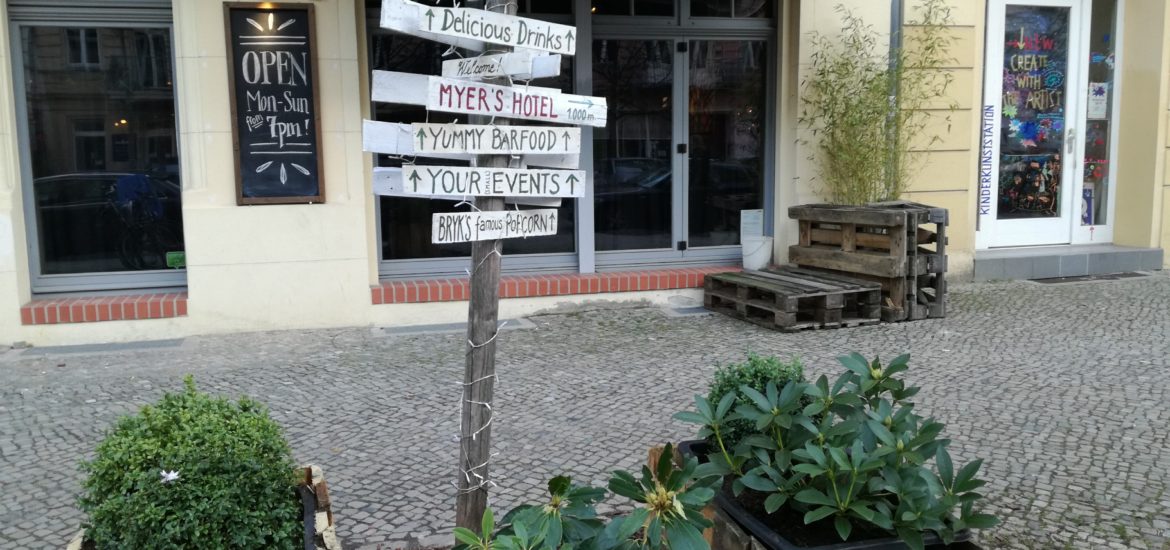 OPEN
Mon-Sun
from 7pm!
↑ Delicious Drinks ↑
Welcome!
MYER'S HOTEL →
1.000 m
↑ YUMMY BARFOOD ↑
↑ YOUR EVENTS ↑
BRYK'S famous POPCORN ↑
KINDERKUNSTSTATION
NEW
CREATE
WITH
THE ARTIST